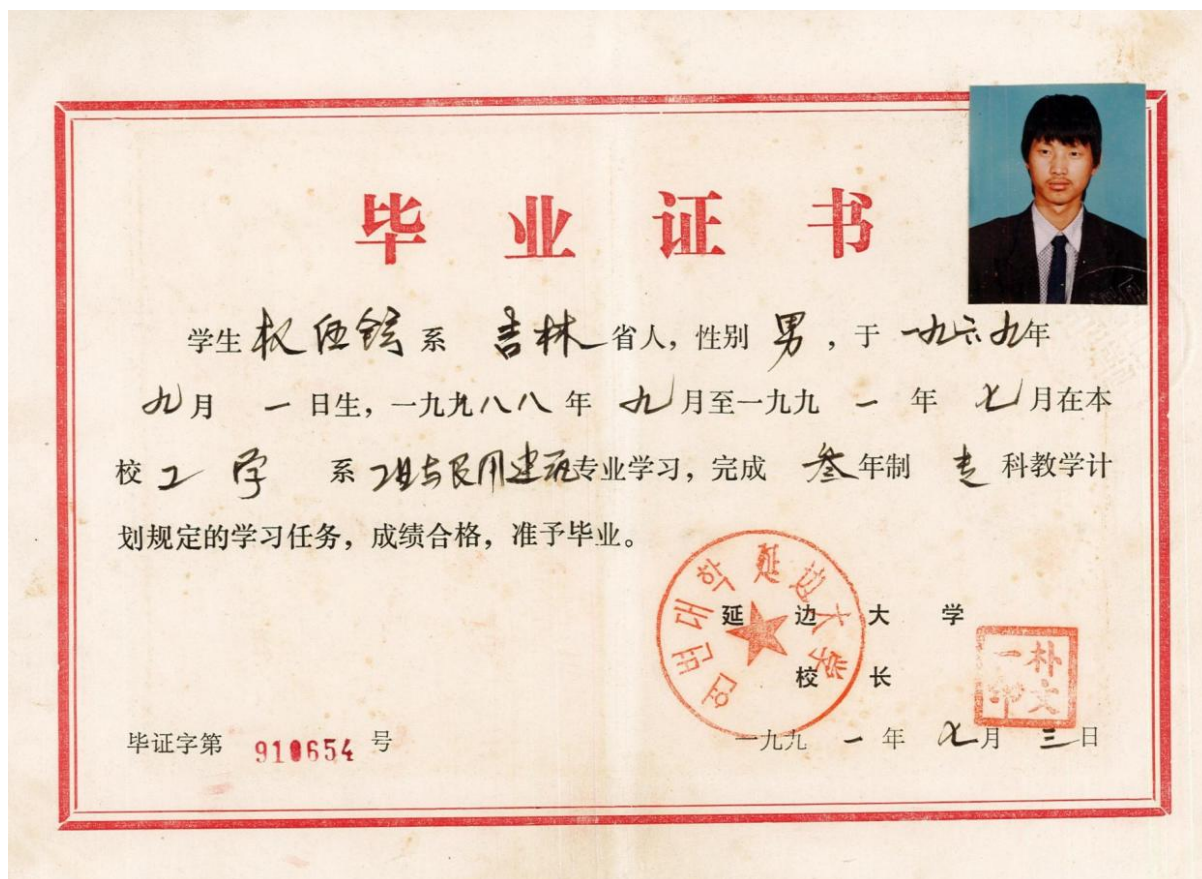 毕业证书
学生 权 伍 系 吉林 省人，性别 男，于 一九六九年
九月 一 日生，一九八八年 九月至一九九 一 年 七月在本
校 工 学 系 工业与民用建筑专业学习，完成 叁年制 专 科教学计
划规定的学习任务，成绩合格，准予毕业。
연변대학 延边大学
延边大学
校长
朴文一印
毕证字第 910654 号
一九九 一 年 七月 三日